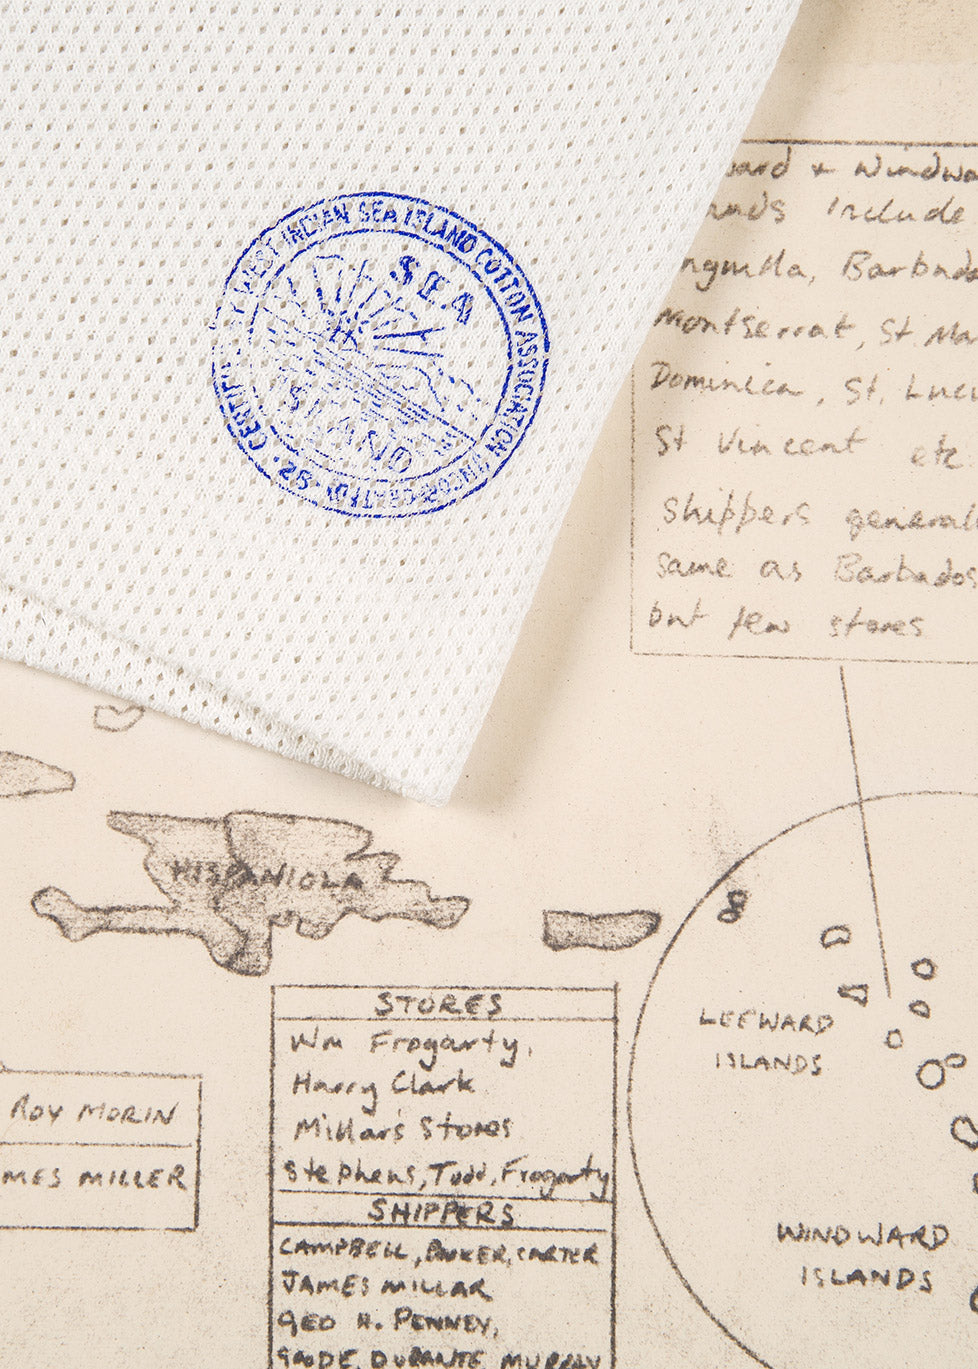 WEST INDIAN SEA ISLAND COTTON ASSOCIATION
SEA
ISLAND
ward + Windwa
nds Include
nguilla, Barbad
Montserrat, St. Ma
Dominica, St. Luci
St Vincent etc
Shippers general
same as Barbados
but few stores
HISPANIOLA
STORES
Wm Frogarty,
Harry Clark
Millar's Stores
Stephens, Todd, Frogarty
SHIPPERS
CAMPBELL, BOOKER, CARTER
JAMES MILLAR
GEO H. PENNEY,
DURANTE MURRAY
ROY MORIN
MES MILLER
LEEWARD
ISLANDS
WINDWARD
ISLANDS